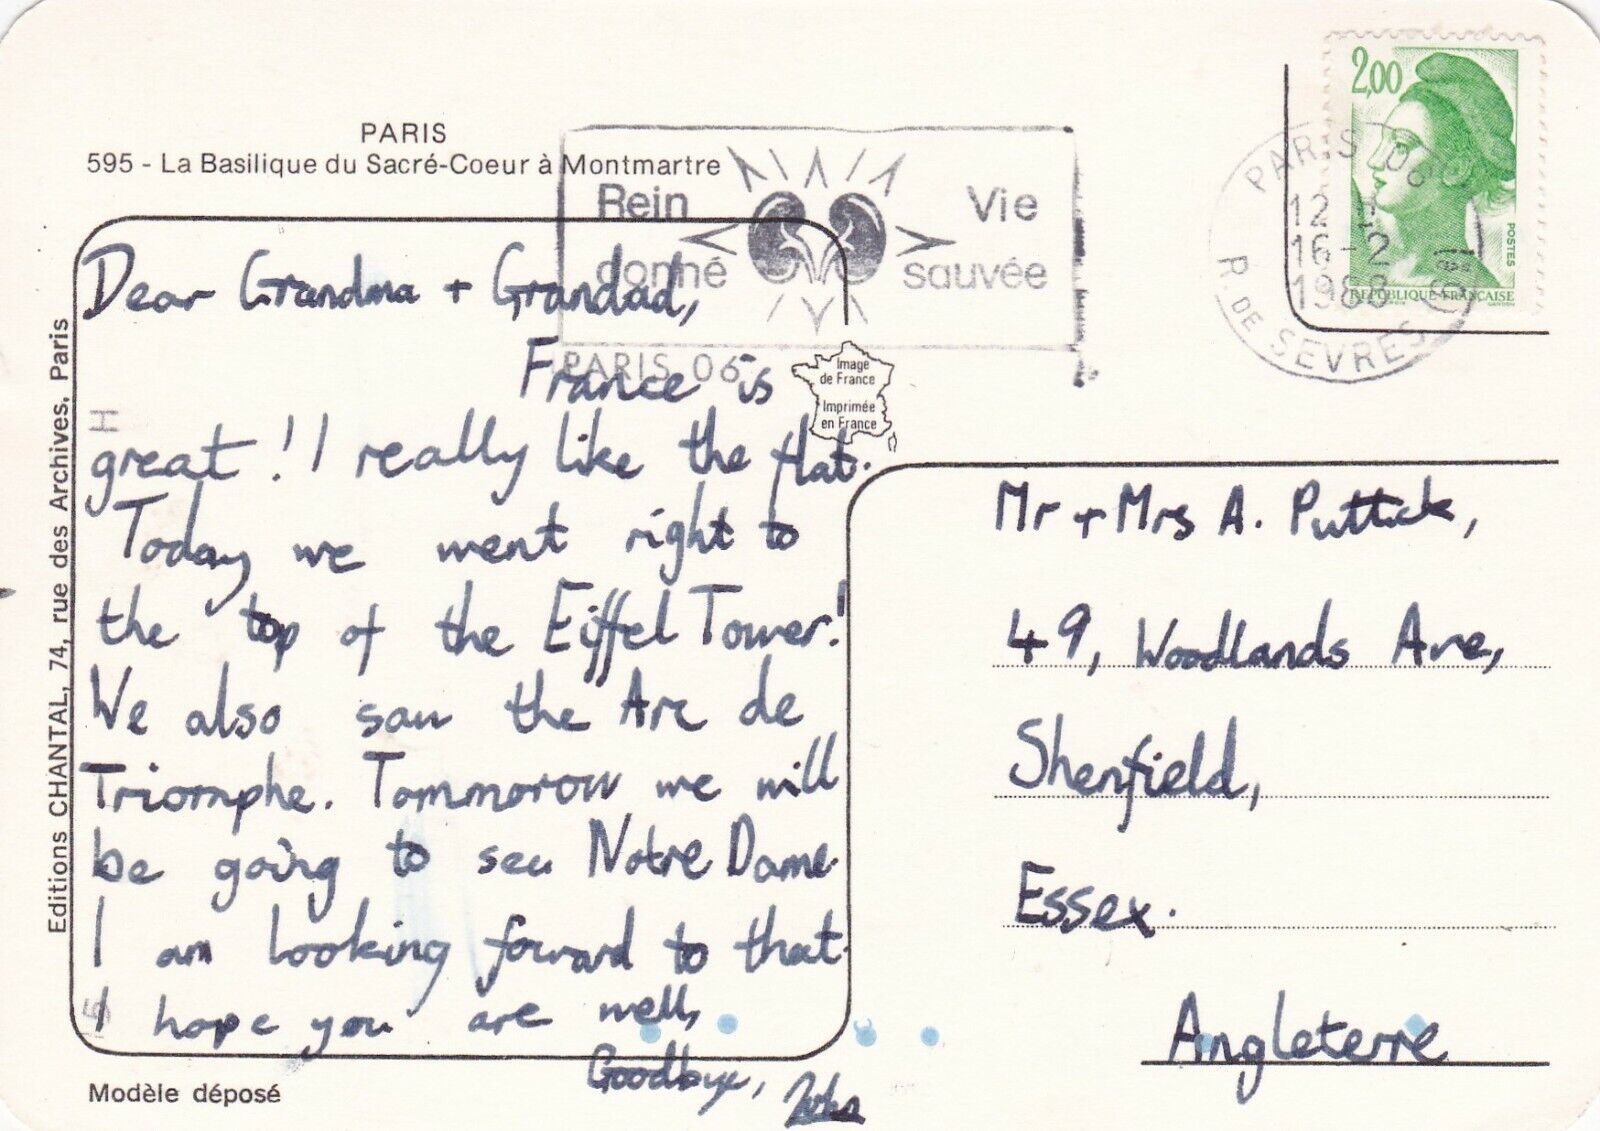 PARIS
595 - La Basilique du Sacré-Coeur à Montmartre
Rein Vie
donné sauvée
PARIS 06
PARIS 06
12 H
16-2
1988
R. DE SEVRES (6e)
2,00
POSTES
REPUBLIQUE FRANÇAISE
Image
de France
Imprimée
en France
Editions CHANTAL, 74, rue des Archives, Paris
Dear Grandma + Grandad,
France is
great! I really like the flat.
Today we went right to
the top of the Eiffel Tower!
We also saw the Arc de
Triomphe. Tommorow we will
be going to see Notre Dame.
I am looking forward to that.
I hope you are well,
Goodbye,
Mr + Mrs A. Puttick,
49, Woodlands Ave,
Shenfield,
Essex.
Angleterre
Modèle déposé